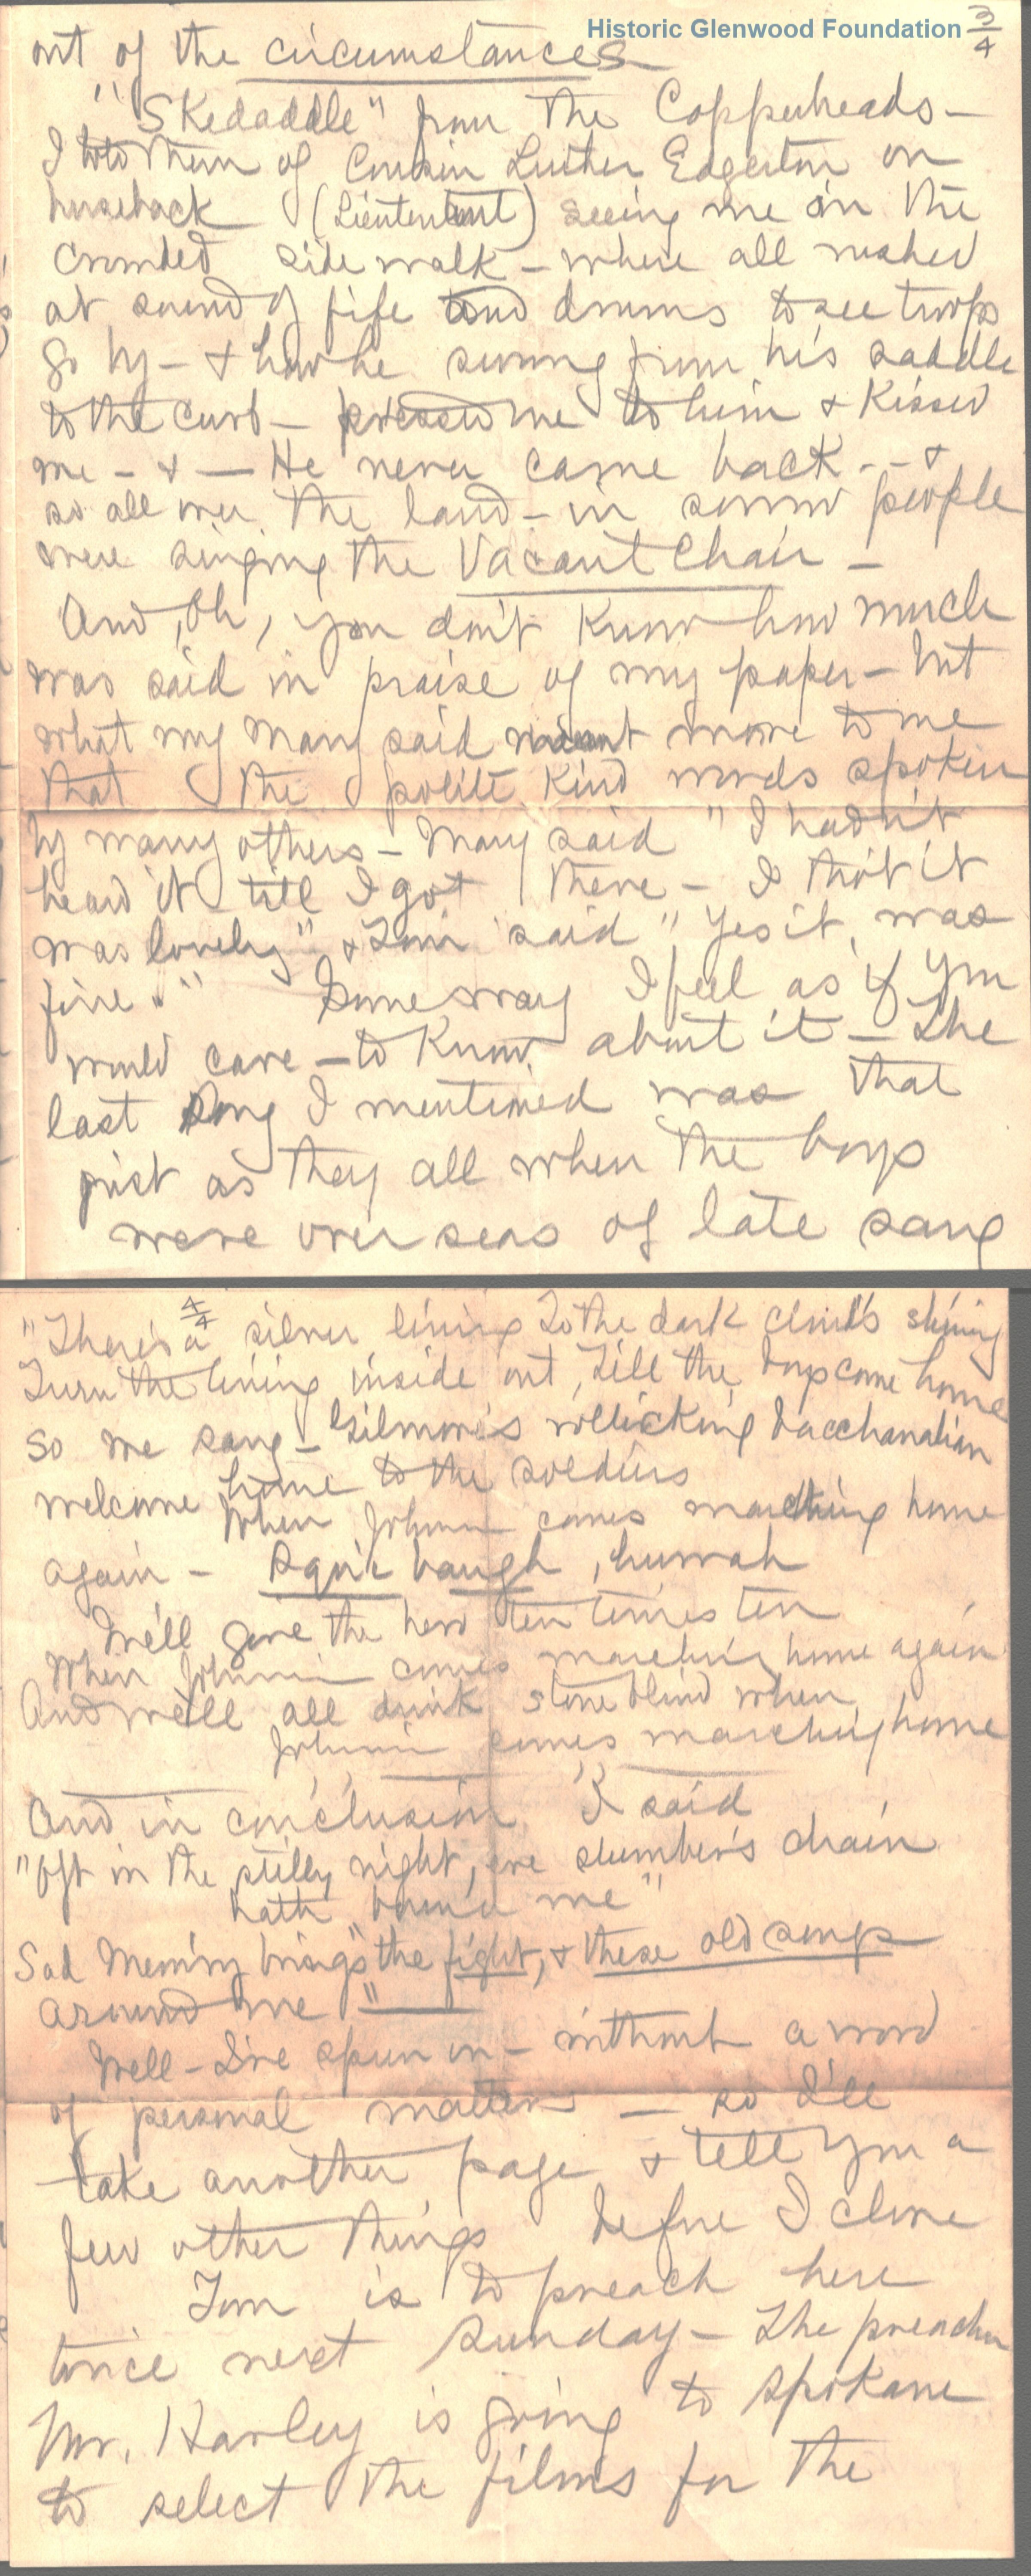 Historic Glenwood Foundation
3/4
out of the circumstances
"Skedaddle" from the Copperheads -
I told them of Cousin Luther Edgerton on
horseback (Lieutentent) seeing me on the
crowded sidewalk - where all rushed
at sound of fife and drums to see troops
go by - & how he swung from his saddle
to the curb - pressed me to him & Kissed
me - & - He never came back - - &
so all over the land - in sorrow people
were singing the Vacant Chair -
And, Oh, you don't Know how much
was said in praise of my paper - but
what my Mary said meant more to me
that the polite Kind words spoken
by many others - Mary said "I hadn't
heard it till I got there - I tho't it
was lovely" & Tom said "Yes it was
fine." Someway I feel as if you
would care - to Know about it - The
last song I mentioned was that
just as they all when the boys
were over seas of late sang
4/4
"There's a silver lining To the dark clouds shining
Turn the lining inside out, Till the boys come home
so we sang - Gilmore's rollicking bacchanalian
welcome home to the soldiers
When Johnnie comes marching home
again - , hurrah
We'll give the hero ten times ten
When Johnnie comes marching home again
And we'll all drink stone blind when
Johnnie comes marching home
And in conclusion I said
"Oft in the stilly night, ere slumber's chain
hath bound me"
Sad Memory brings "the fight, & these old songs
around me"
Well - I've spun on - without a word
of personal matters - so I'll
take another page & tell you a
few other things before I close
Tom is to preach here
twice next Sunday - The preacher
Mr. Harley is going to Spokane
to select the films for the